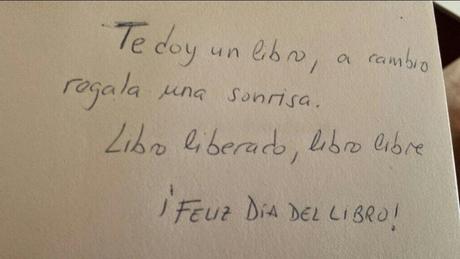 Te doy un libro, a cambio
regala una sonrisa.
Libro liberado, libro libre
¡FELIZ DÍA DEL LIBRO!